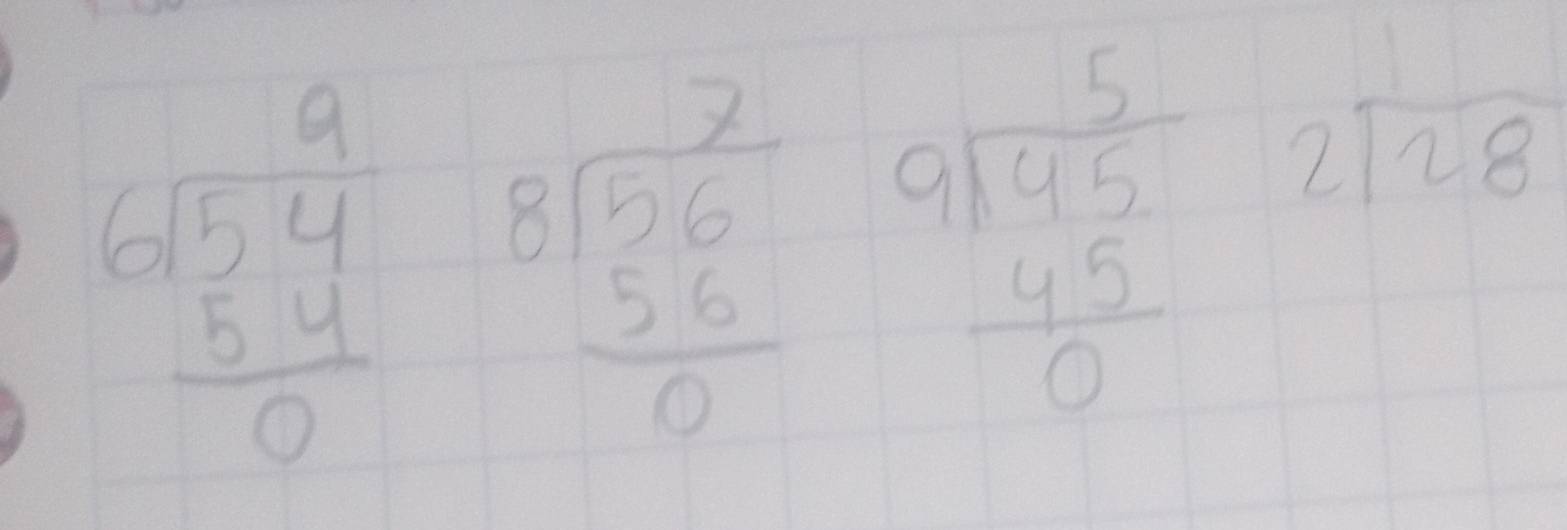 9 7 5 1
6)54 8)56 9)45 2)28
54 56 45
0 0 0